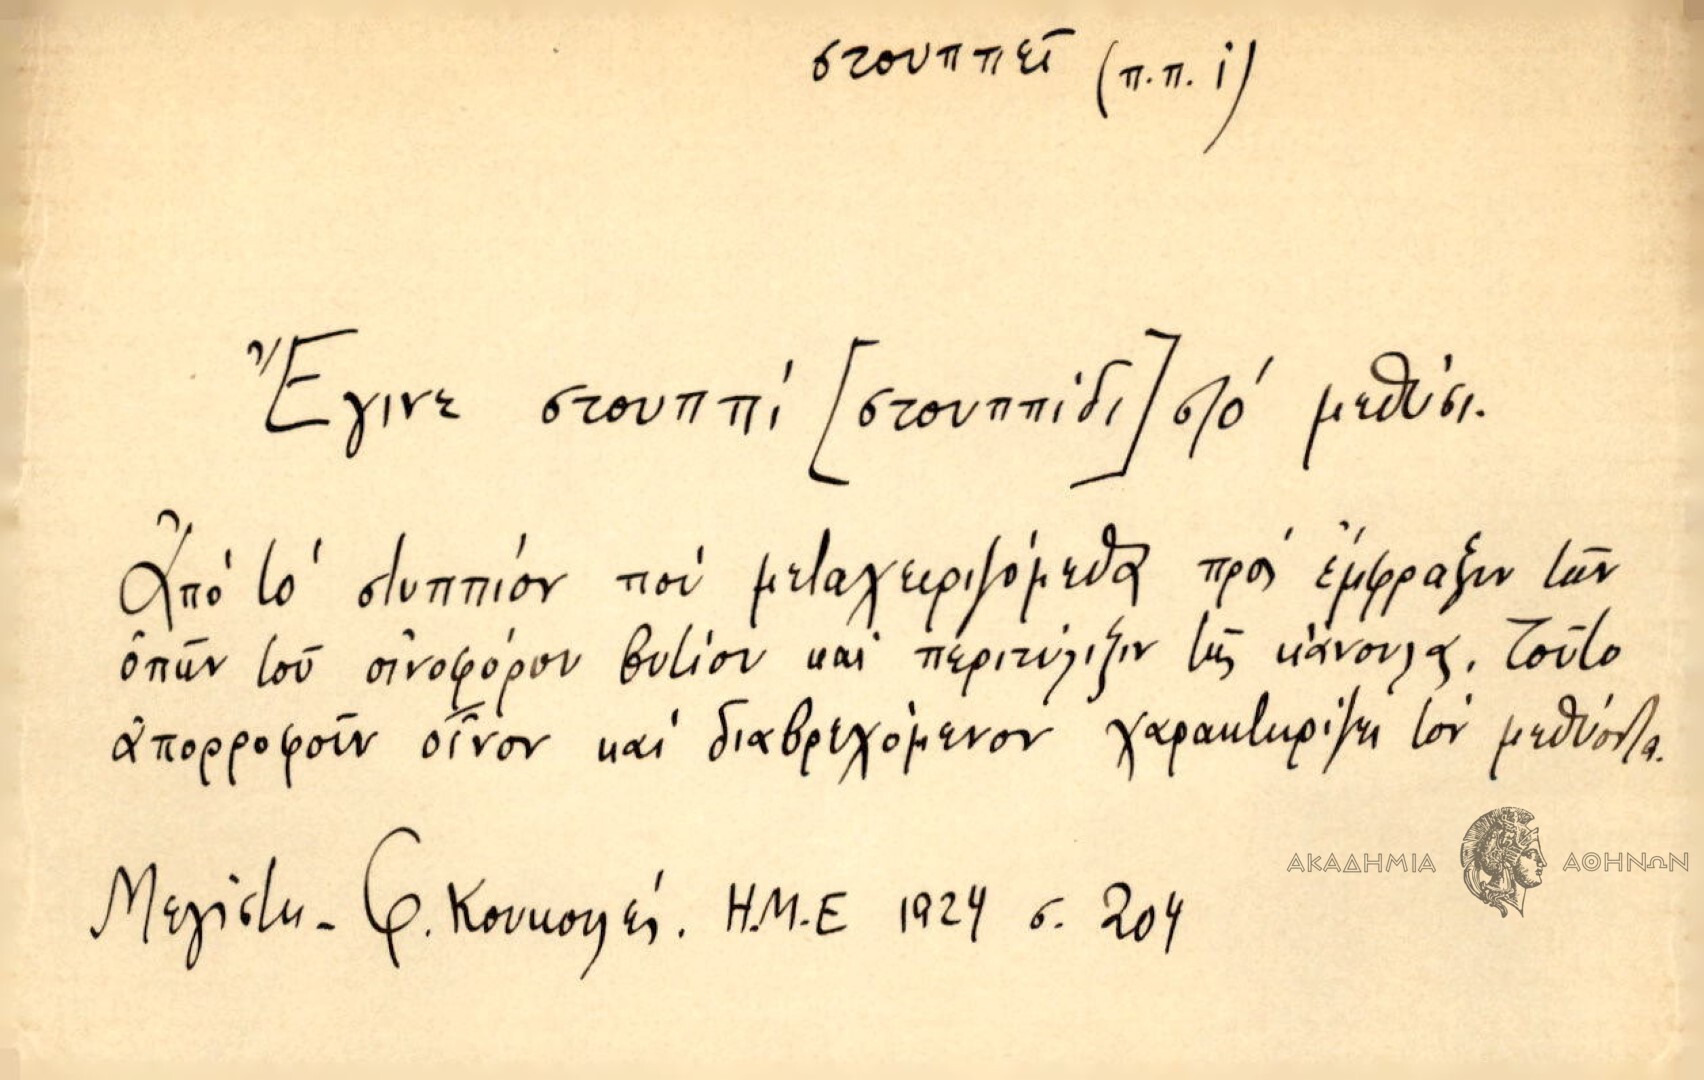 στουππεῖ (π.π. ί)
Ἔγινε στουππί [στουππίδι] στό μεθύσι.
Ἀπό τό στυππιόν πού μεταχειριζόμεθα πρός ἔμφραξιν τῶν
ὀπῶν τοῦ οἰνοφόρου βυτίου καί περιτύλιξιν τῆς κάνουλας. Τοῦτο
ἀπορροφοῦν οἶνον καί διαβρεχόμενον χαρακτηρίζει τόν μεθύοντα.
Μεγίστη - Φ. Κουκουλές. Η.Μ.Ε 1924 σ. 204
ΑΚΑΔΗΜΙΑ ΑΘΗΝΩΝ